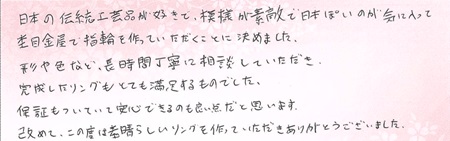 日本の伝統工芸品が好きで、模様が素敵で日本ぽいのが気に入って
杢目金屋で指輪を作っていただくことに決めました。
形や色など、長時間丁寧に相談していただき、
完成したリングもとても満足するものでした。
保証もついていて安心できるのも良い点だと思います。
改めて、この度は素晴らしいリングを作っていただきありがとうございました。